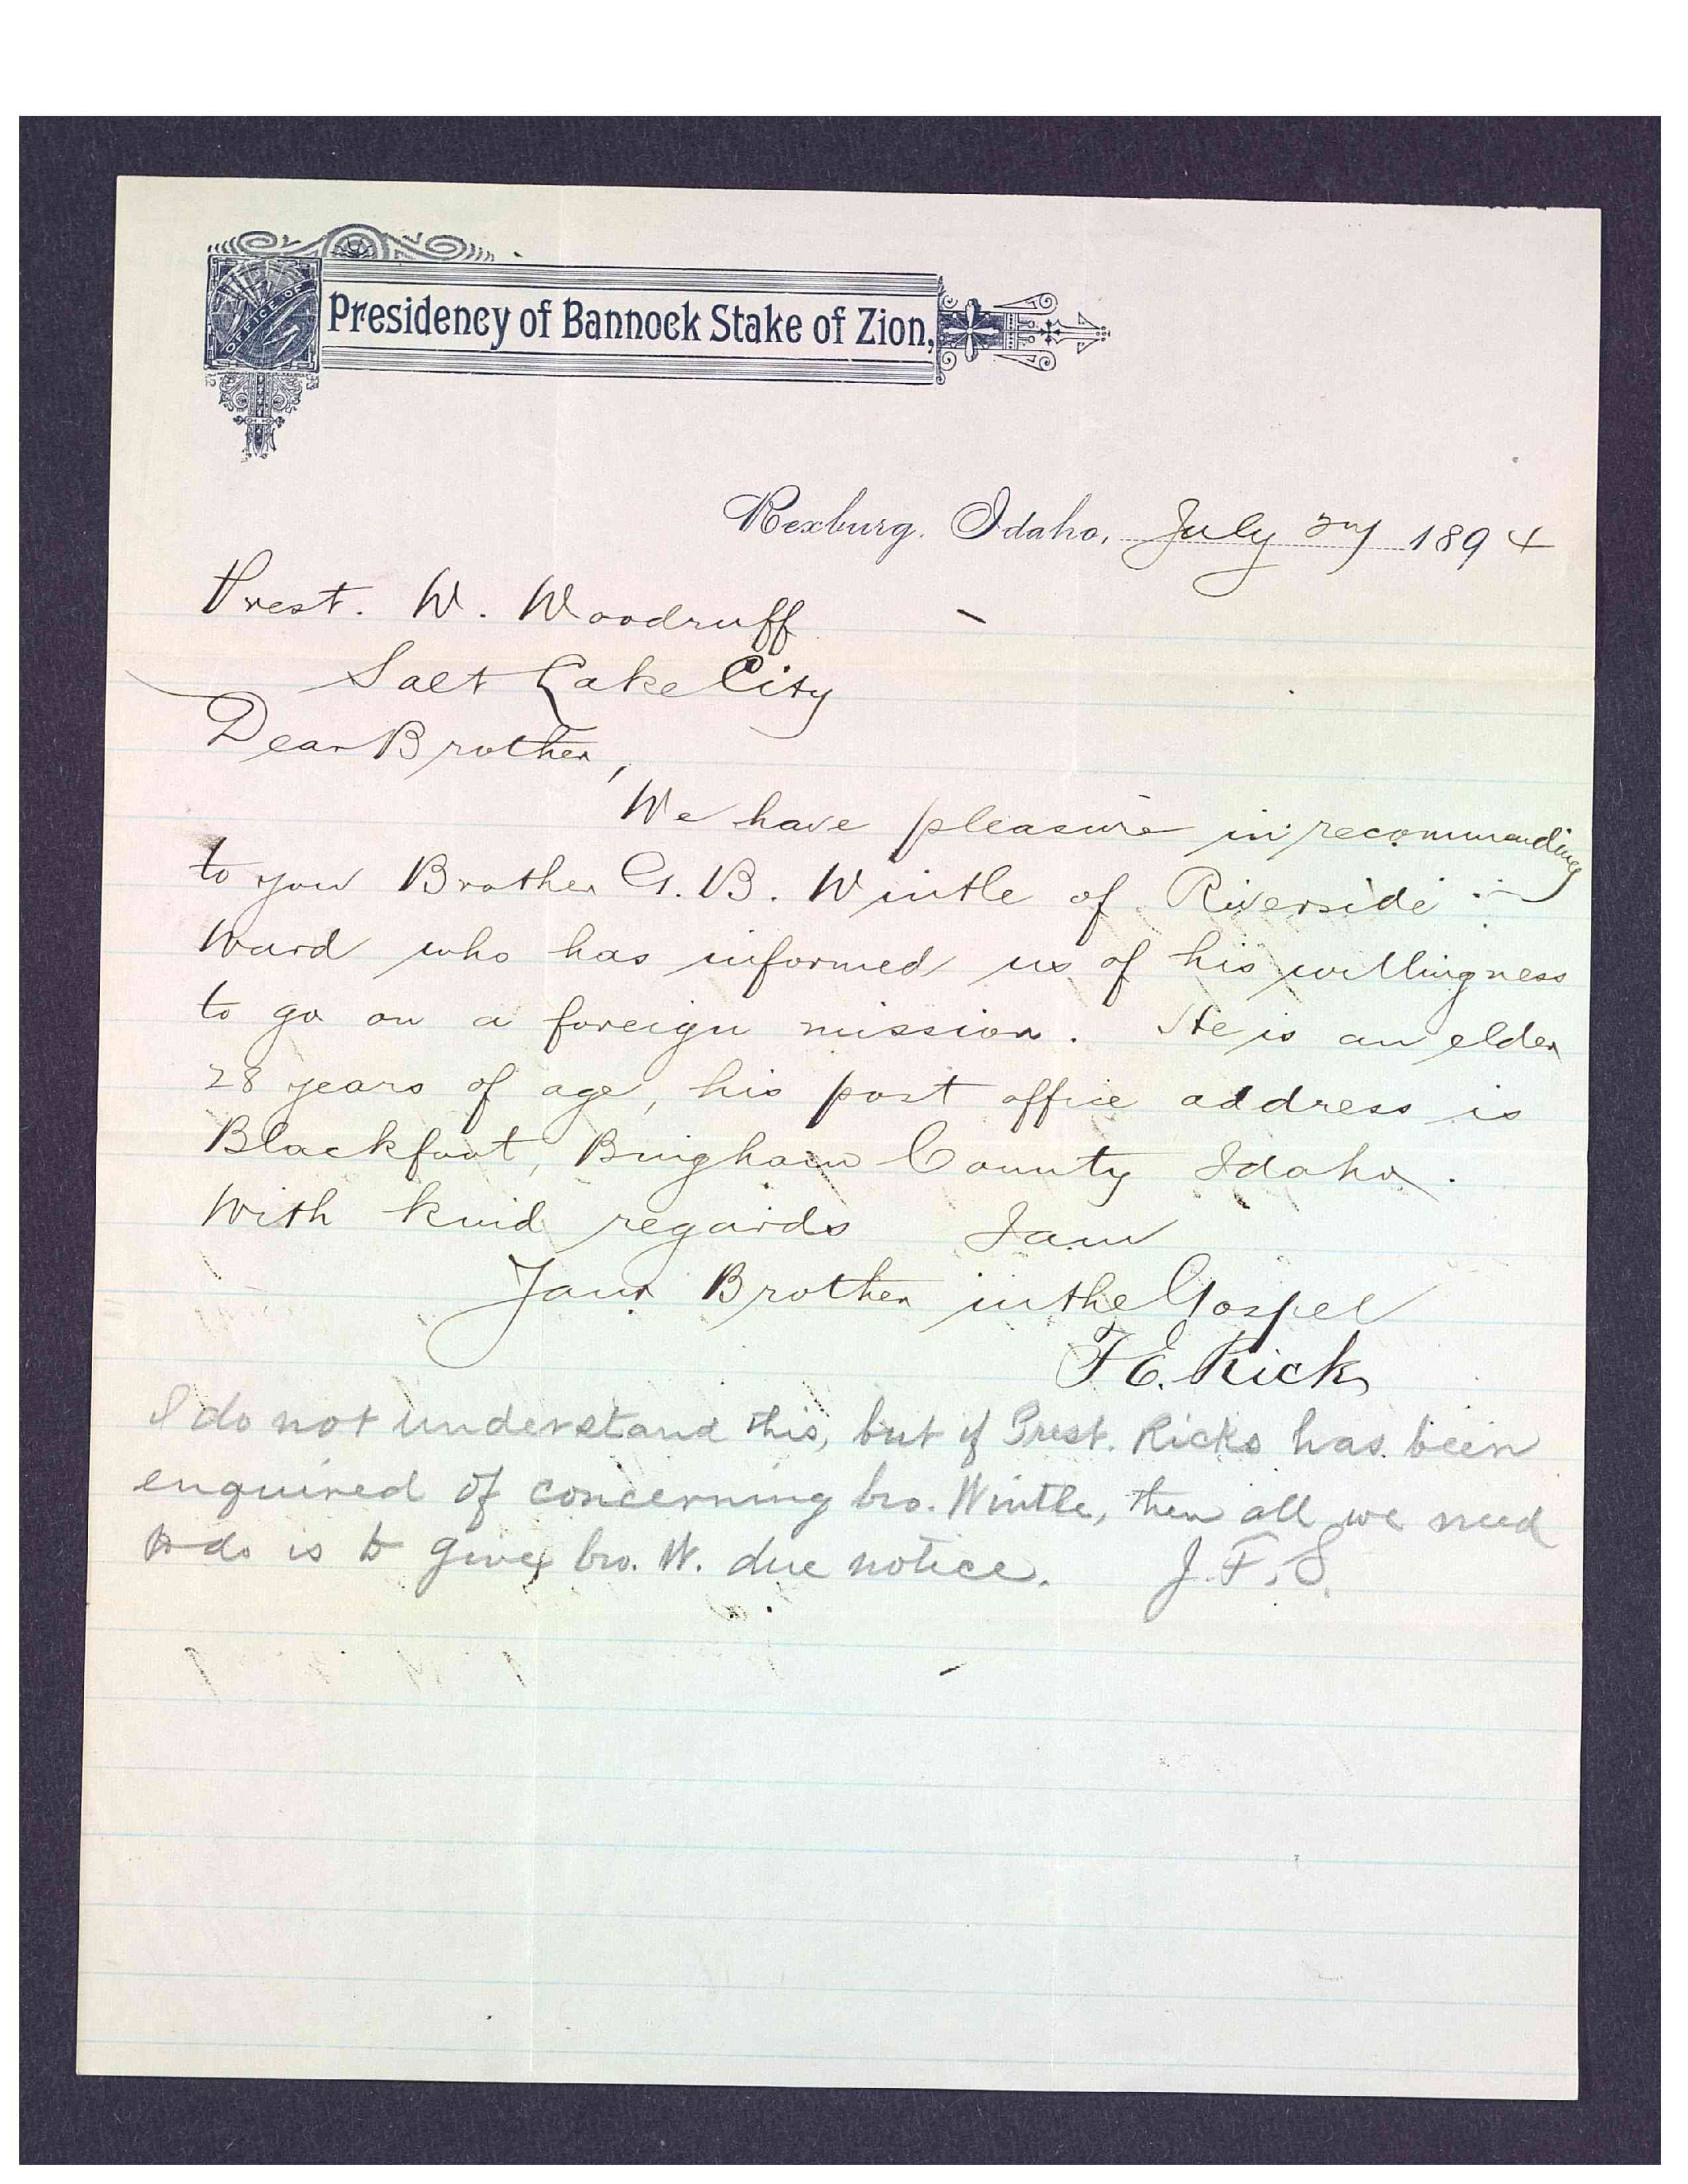 OFFICE OF
Presidency of Bannock Stake of Zion,
Rexburg, Idaho, July 27 1894
Prest. W. Woodruff
Salt Lake City
Dear Brother,
We have pleasure in recommending
to you Brother G. B. Wintle of Riverside
Ward who has informed us of his willingness
to go on a foreign mission. He is an elder
28 years of age, his post office address is
Blackfoot, Bingham County Idaho.
With kind regards I am
Your Brother in the Gospel
T E. Ricks
I do not understand this, but if Prest. Ricks has been
enquired of concerning bro. Wintle, then all we need
to do is to give bro. W. due notice. J. F. S.